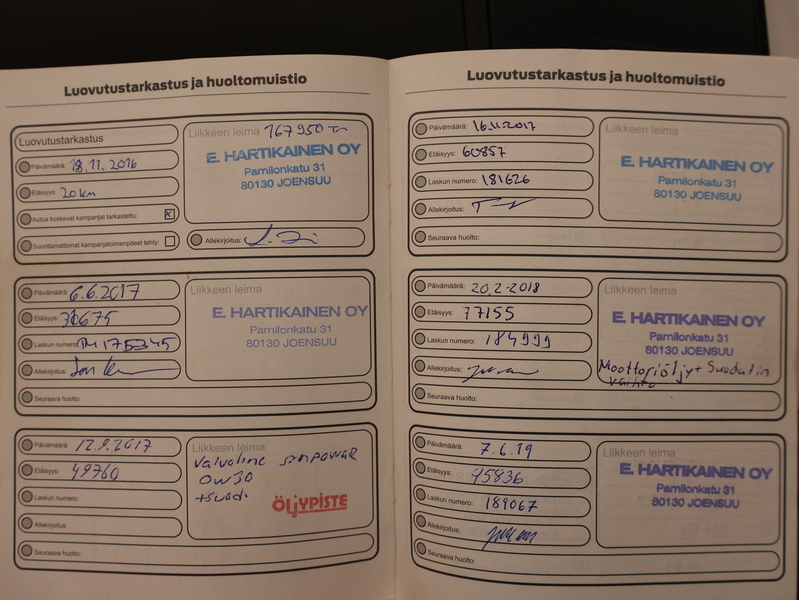 Luovutustarkastus ja huoltomuistio
Luovutustarkastus
Päivämäärä: 18.11.2016
Etäisyys: 20 km
Autoa koskevat kampanjat tarkastettu: x
Suorittamattomat kampanjatoimenpiteet tehty:
Liikkeen leima 167950
E. HARTIKAINEN OY
Pamilonkatu 31
80130 JOENSUU
Allekirjoitus:
Päivämäärä: 6.6.2017
Etäisyys: 30675
Laskun numero: TM175345
Allekirjoitus:
Seuraava huolto:
Liikkeen leima
E. HARTIKAINEN OY
Pamilonkatu 31
80130 JOENSUU
Päivämäärä: 12.9.2017
Etäisyys: 49760
Laskun numero:
Allekirjoitus:
Seuraava huolto:
Liikkeen leima
Valvoline synpower
0W30
+suod.
ÖLJYPISTE
Luovutustarkastus ja huoltomuistio
Päivämäärä: 16.11.2017
Etäisyys: 60857
Laskun numero: 181626
Allekirjoitus:
Seuraava huolto:
Liikkeen leima
E. HARTIKAINEN OY
Pamilonkatu 31
80130 JOENSUU
Päivämäärä: 20.2-2018
Etäisyys: 77155
Laskun numero: 184999
Allekirjoitus:
Seuraava huolto:
Liikkeen leima
E. HARTIKAINEN OY
Pamilonkatu 31
80130 JOENSUU
Moottoriöljy + Suodatin
vaihto
Päivämäärä: 7.6.19
Etäisyys: 95836
Laskun numero: 189067
Allekirjoitus:
Seuraava huolto:
Liikkeen leima
E. HARTIKAINEN OY
Pamilonkatu 31
80130 JOENSUU